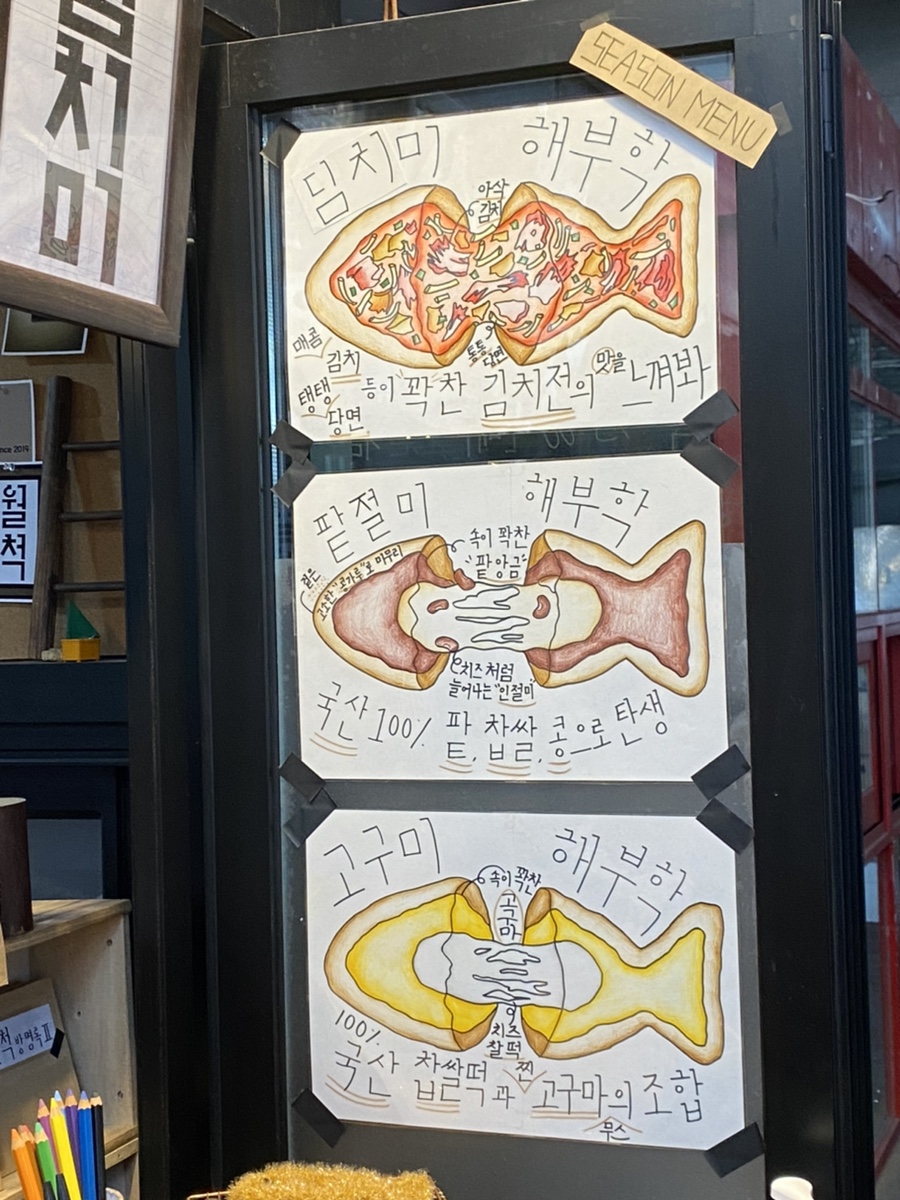 치미
SEASON MENU
딤치미 해부학
아삭
김치
매콤
김치
탱탱
당면
통통
당면
등이 꽉 찬 김치전의 맛을 느껴봐
nce 2019
월
척
팥절미 해부학
속이 꽉찬
"팥앙금"
겉은
고소한 "콩가루"로 마무리
치즈처럼
늘어나는 "인절미"
국산 100% 팥, 찹쌀, 콩으로 탄생
고구미 해부학
속이 꽉찬
고구마
치즈
찰떡
100%
국산 찹쌀떡과 찐 고구마의 조합
무스
척 방명록